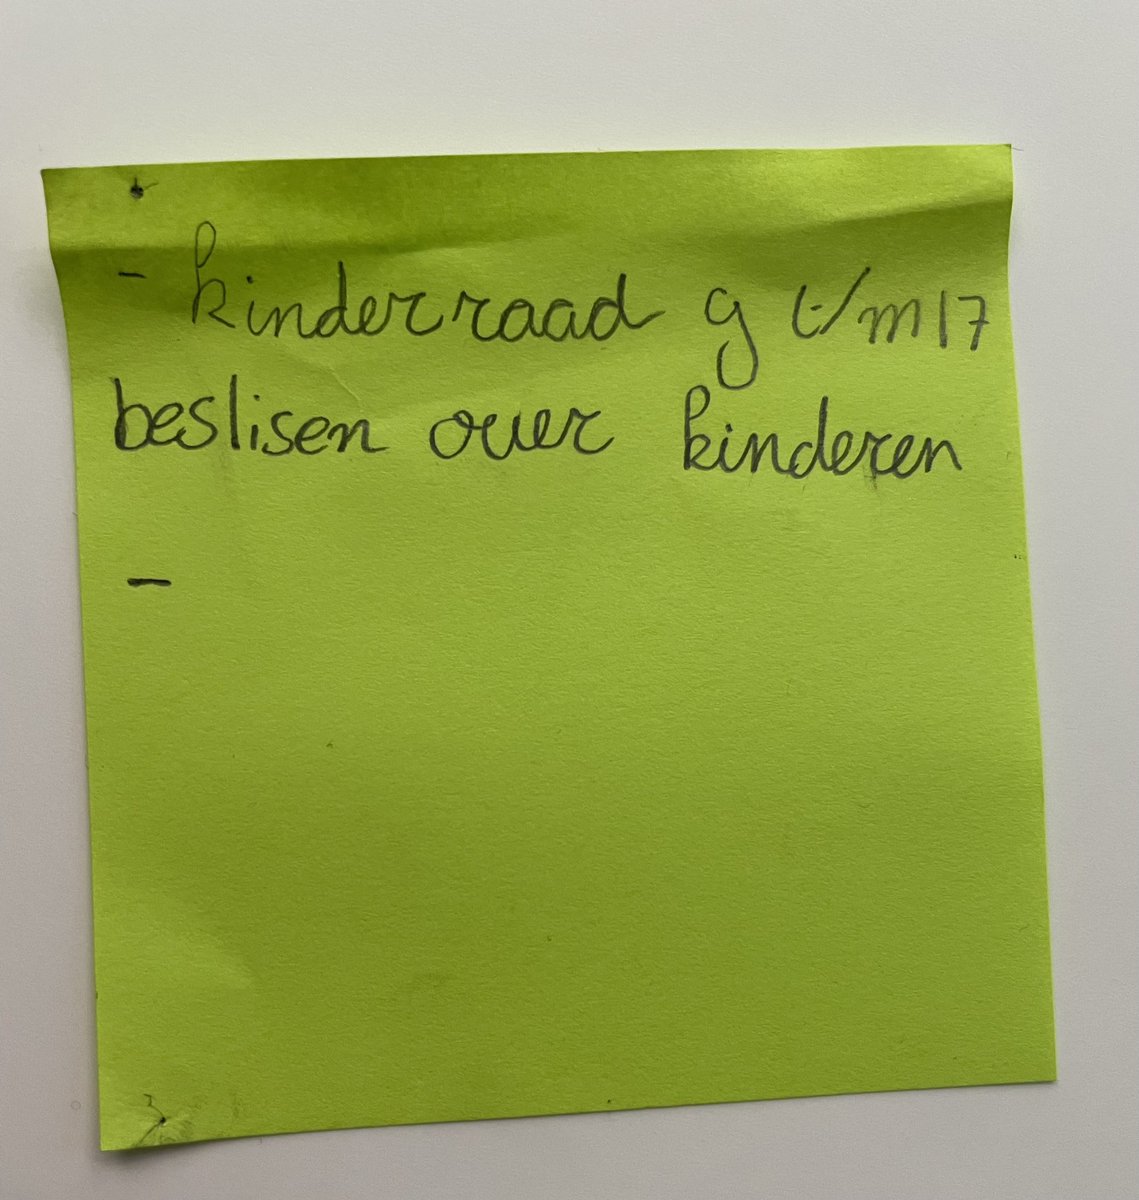 - kinderraad 9 t/m 17
beslisen over kinderen
-